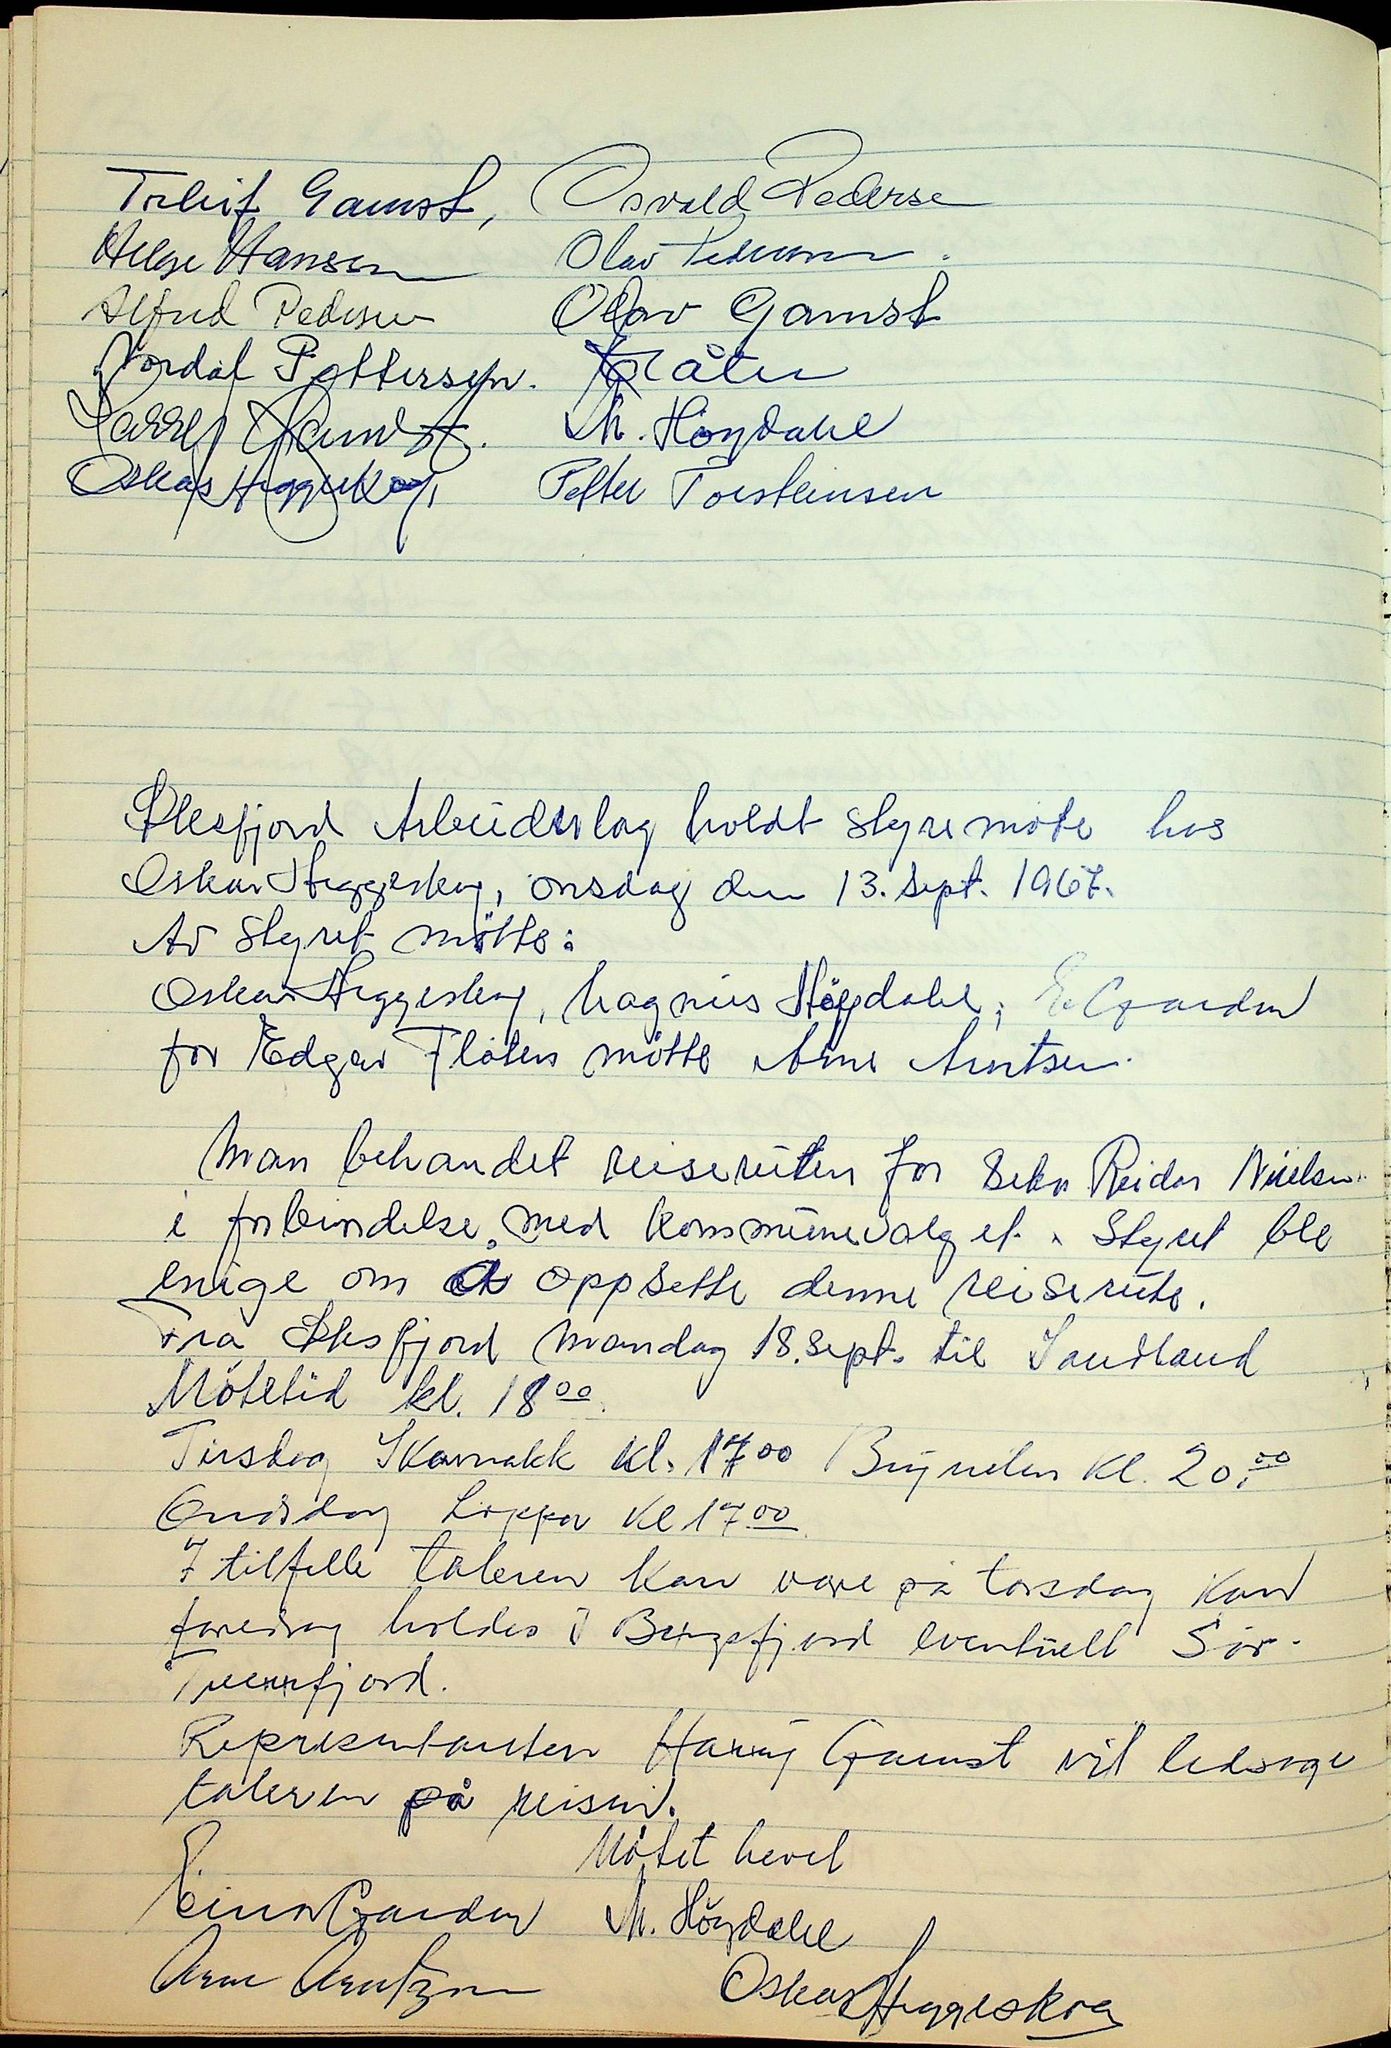 Torleif Gamst, Osvald Pederse
Helge Hansen Olav Pedersen.
Alfred Pedersen Olav Gamst
Nordal Pettersen.
Harry Gamst. M. Höydahl
Oskar Heggeskog, Petter Torsteinsen
Øksfjord Arbeiderlag holdt styremöte hos
Oskar Heggeskog, onsdag den 13. sept. 1967.
Av styret mötte:
Oskar Heggeskog, Magnus Höydahl, E. Gamst
for Edgar Flåten mötte Arne Arntsen.
Man behandlet reiseruten for Sekr Reidar Nielsen
i forbindelse med kommunevalget. Styret ble
enige om å oppsette denne reiserute.
Fra Øksfjord mandag 18. sept. til Sandland
Mötetid kl. 18 00
Tirsdag Skavnakk kl. 17 00 kl. 20.00
Onsdag Loppa kl 17 00
I tilfelle taleren kan være på torsdag kan
foredrag holdes i Bergsfjord eventuelt Sör-
Tverrfjord.
Representanten Harry Gamst vil ledsage
taleren på reisen.
Mötet hevet
Einar M. Höydahl
Arne Arntzen Oskar Heggeskog